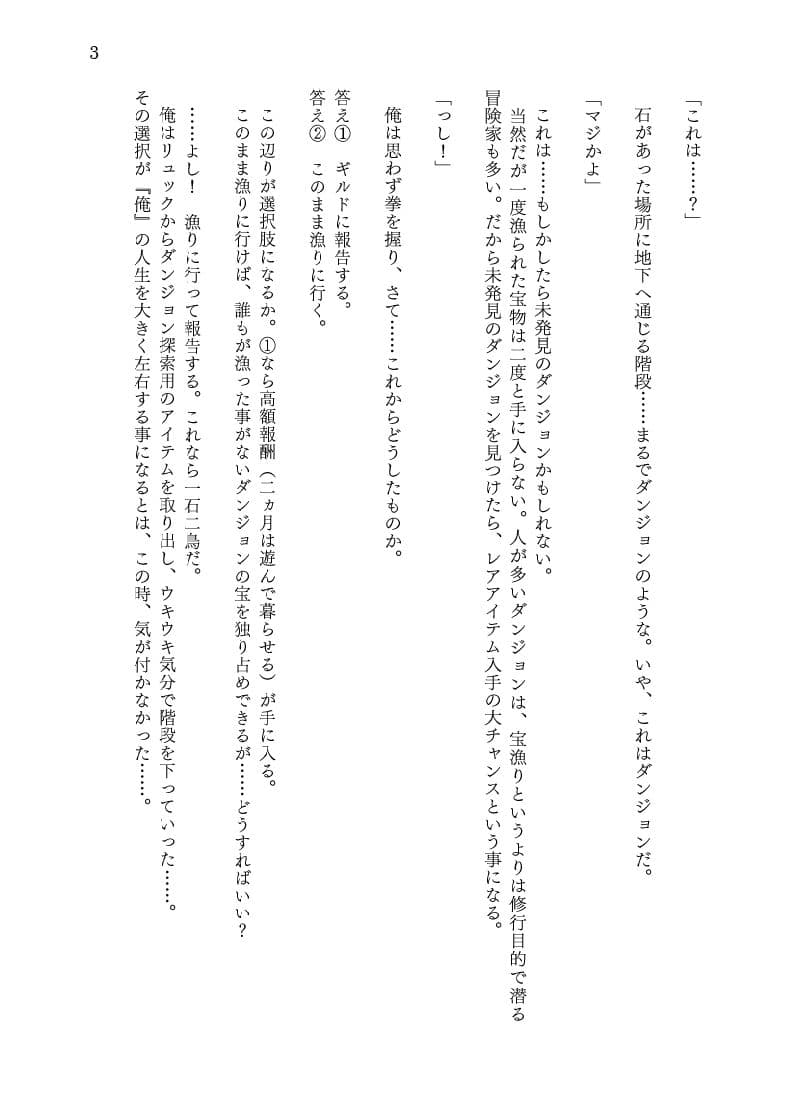 3
「これは……？」
　石があった場所に地下へ通じる階段……まるでダンジョンのような。いや、これはダンジョンだ。
「マジかよ」
　これは……もしかしたら未発見のダンジョンかもしれない。
　当然だが一度漁られた宝物は二度と手に入らない。人が多いダンジョンは、宝漁りというよりは修行目的で潜る
冒険家も多い。だから未発見のダンジョンを見つけたら、レアアイテム入手の大チャンスという事になる。
「っし！」
　俺は思わず拳を握り、さて……これからどうしたものか。
答え①　ギルドに報告する。
答え②　このまま漁りに行く。
　この辺りが選択肢になるか。①なら高額報酬（二ヵ月は遊んで暮らせる）が手に入る。
　このまま漁りに行けば、誰もが漁った事がないダンジョンの宝を独り占めできるが……どうすればいい？
　……よし！　漁りに行って報告する。これなら一石二鳥だ。
　俺はリュックからダンジョン探索用のアイテムを取り出し、ウキウキ気分で階段を下っていった……。
その選択が『俺』の人生を大きく左右する事になるとは、この時、気が付かなかった……。